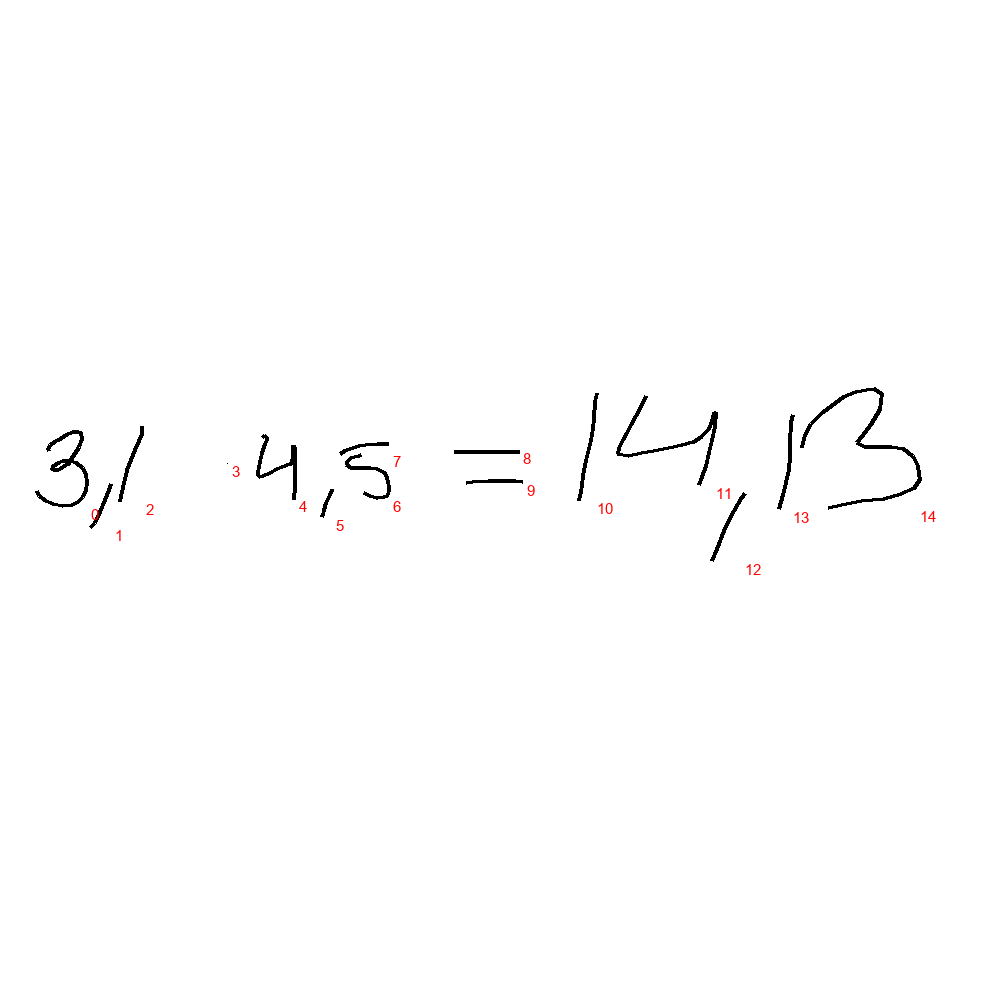 3,1 · 4,5 = 14,13
0 1 2 3 4 5 6 7 8 9 10 11 12 13 14